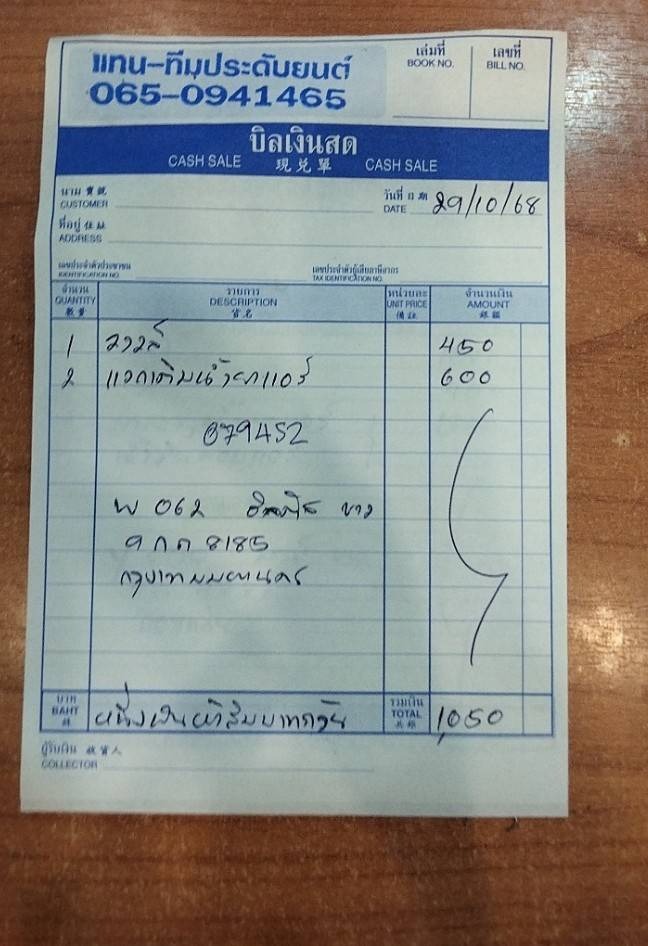 แทน-ทีมประดับยนต์
065-0941465
เล่มที่
BOOK NO.
เลขที่
BILL NO.
บิลเงินสด
CASH SALE 現兌單 CASH SALE
นาม 寶號
CUSTOMER
วันที่ 日期
DATE 29/10/68
ที่อยู่ 住址
ADDRESS
เลขประจำตัวประชาชน
IDENTIFICATION NO.
เลขประจำตัวผู้เสียภาษีอากร
TAX IDENTIFICATION NO.
จำนวน
QUANTITY
數量
รายการ
DESCRIPTION
貨名
หน่วยละ
UNIT PRICE
備註
จำนวนเงิน
AMOUNT
銀碼
1 วาวล์ 450
2 แวคเติมน้ำยาแอร์ 600
079452
พ 062 ขาว
9 กด 8185
กรุงเทพมหานคร
บาท
BAHT
銖
หนึ่งพันห้าสิบบาทถ้วน
รวมเงิน
TOTAL
共銀
1,050
ผู้รับเงิน 收貨人
COLLECTOR